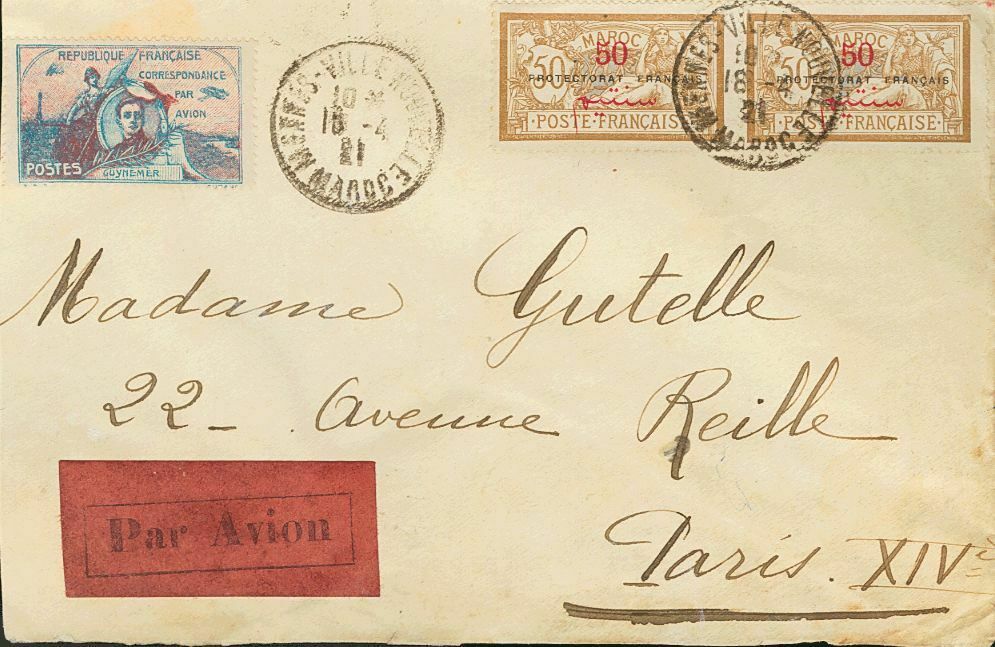 RÉPUBLIQUE FRANÇAISE
CORRESPONDANCE
PAR
AVION
POSTES
GUYNEMER
MEKNES-VILLE NOUVELLE
10
18 -4
21
MAROC
MAROC
50
50
PROTECTORAT FRANÇAIS
سنتيم
POSTE FRANÇAISE
MAROC
50
50
PROTECTORAT FRANÇAIS
سنتيم
POSTE FRANÇAISE
MEKNES-VILLE NOUVELLE
10
18 -4
21
MAROC
Madame Gutelle
22 - Avenue Reille
Par Avion
Paris. XIVe